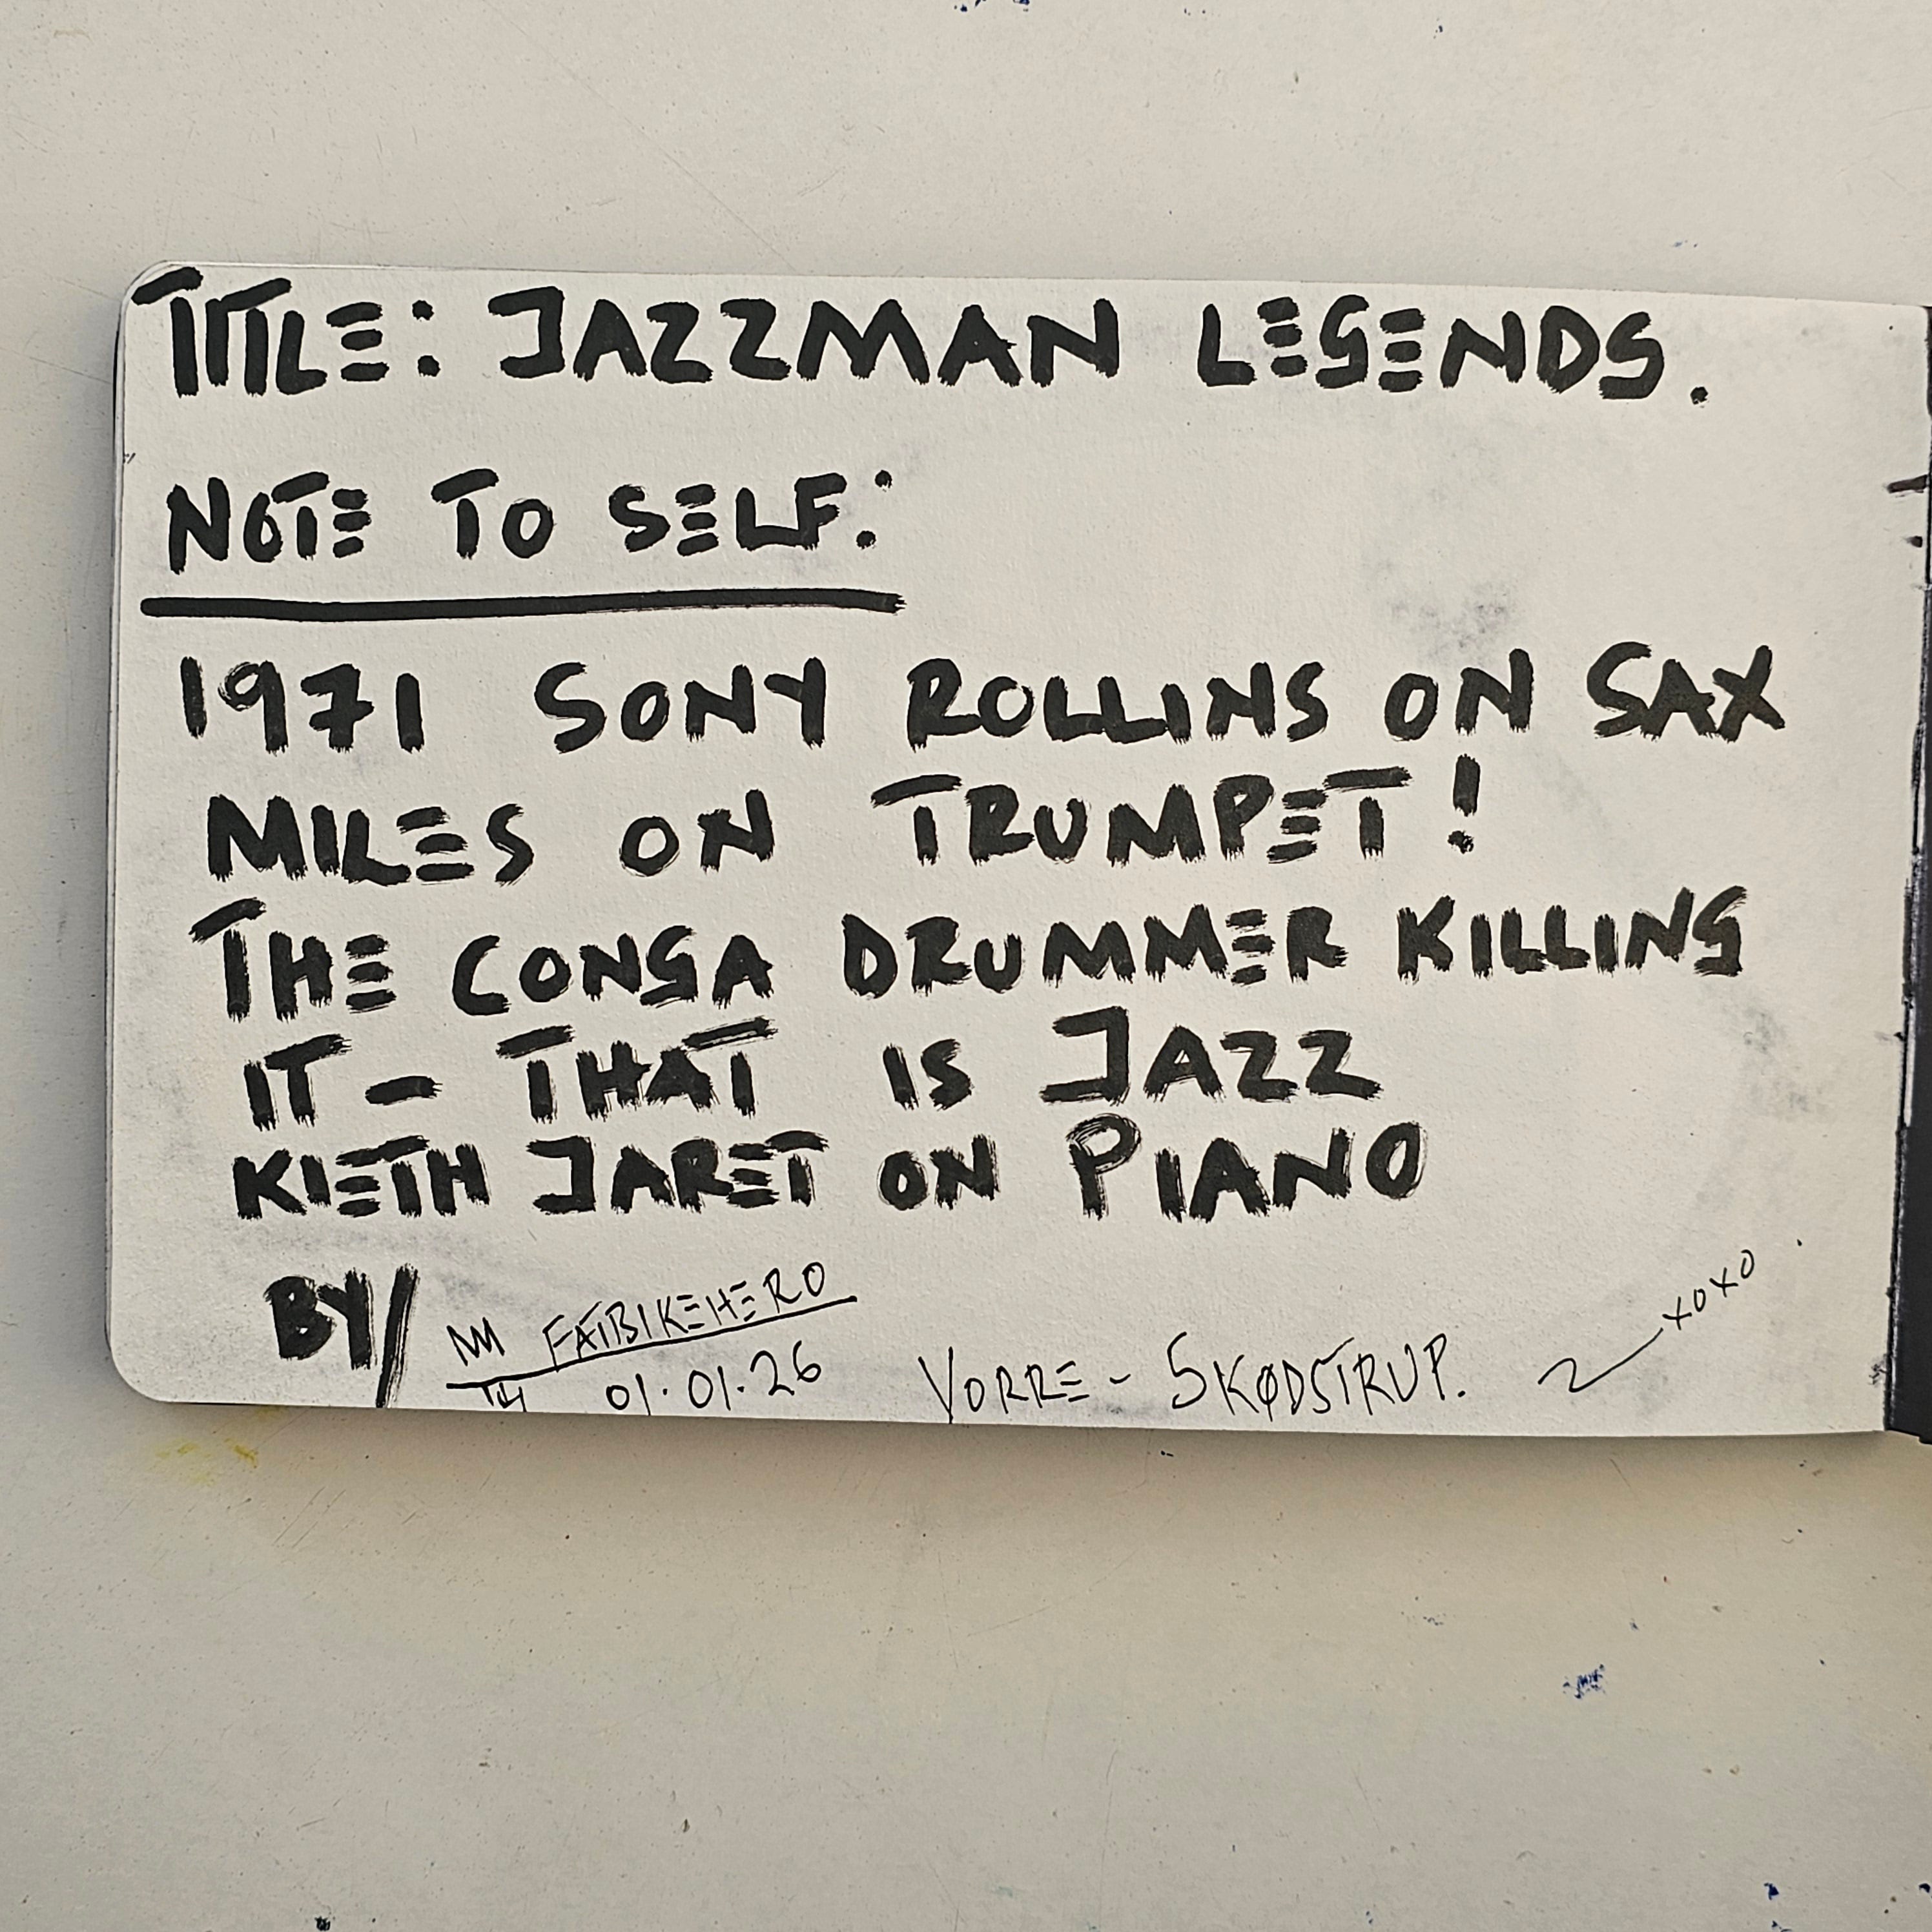 TITLE: JAZZMAN LEGENDS.
NOTE TO SELF:
1971 SONY ROLLINS ON SAX
MILES ON TRUMPET!
THE CONGA DRUMMER KILLING
IT - THAT IS JAZZ
KIETH JARET ON PIANO
BY/ FATBIKEHERO
01.01.26 VORRE - SKØDSTRUP.
XOXO.